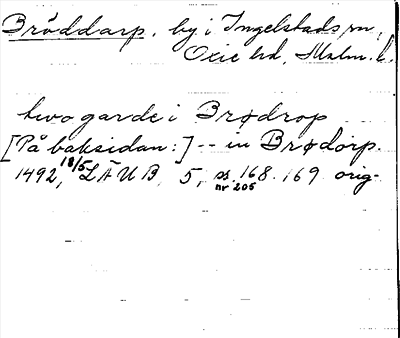 Bröddarp, by i Ingelstads sn,
Oxie hd, Malm. l.
two garde i Brødrop
[På baksidan:] -- in Brødorp.
1492, 18/5 LÄUB, 5, ss. 168-169 orig.
nr 205